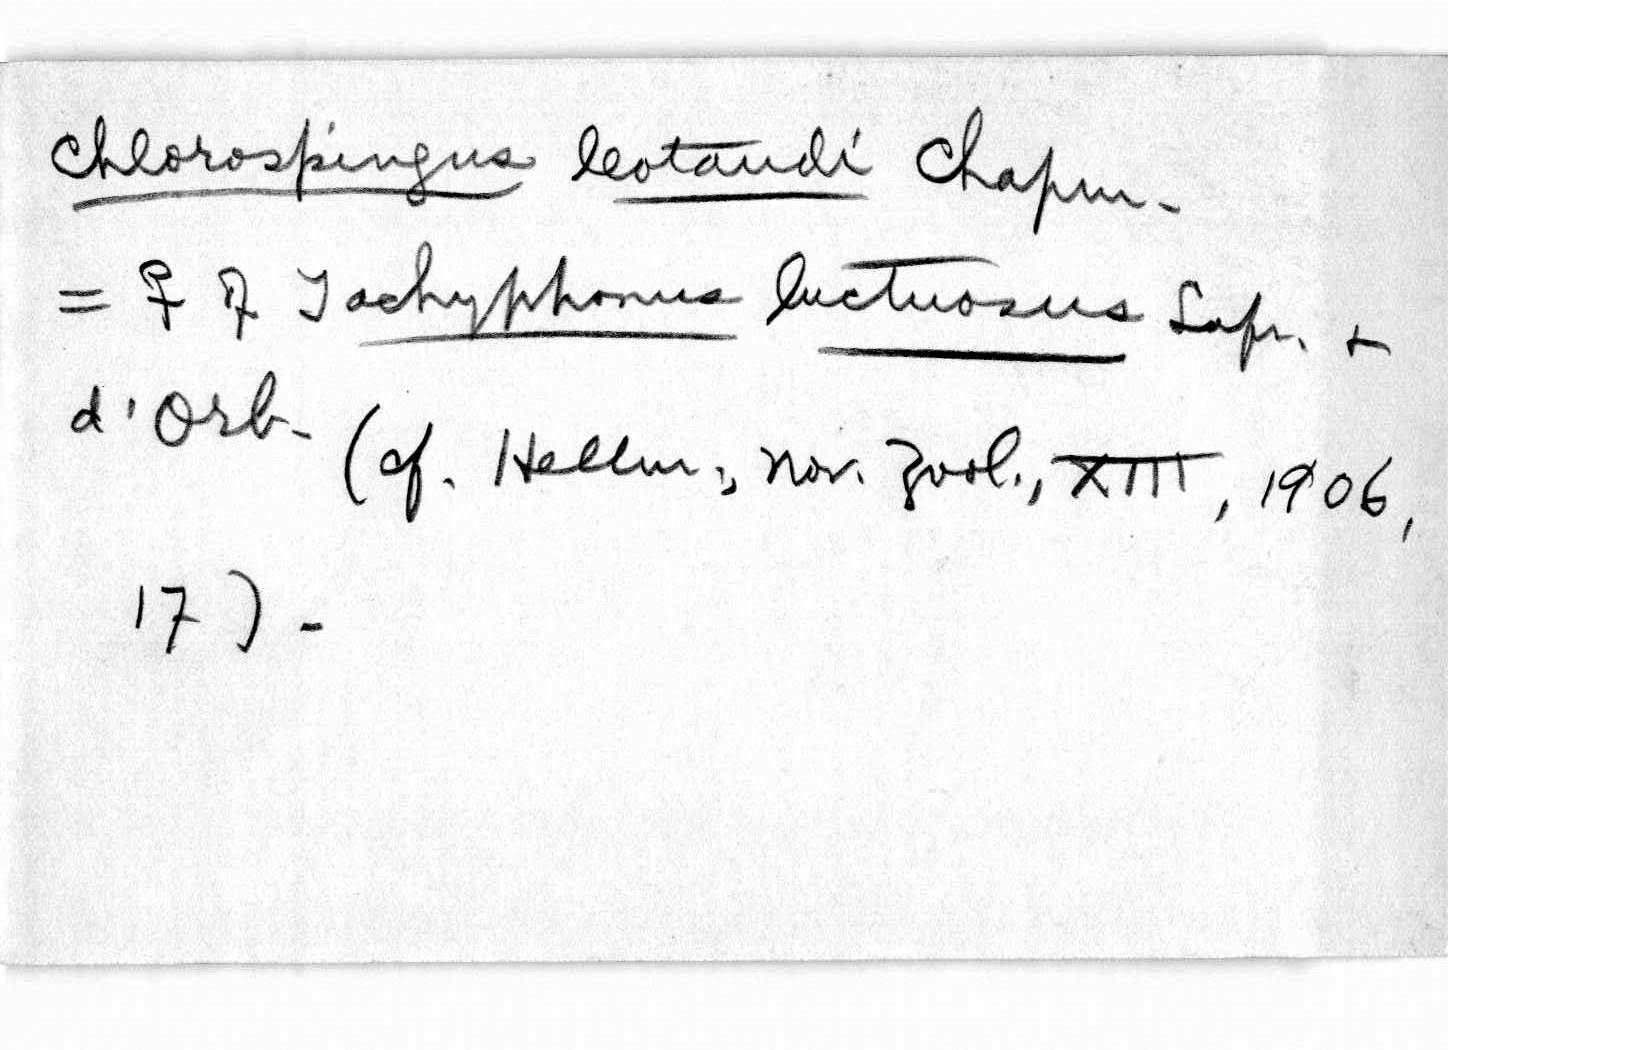 Chlorospingus leotaudi Chapm.
= ♀ of Tachyphonus luctuosus Lafr. +
d'Orb. (cf. Hellm., Nov. Zool., XIII, 1906,
17).